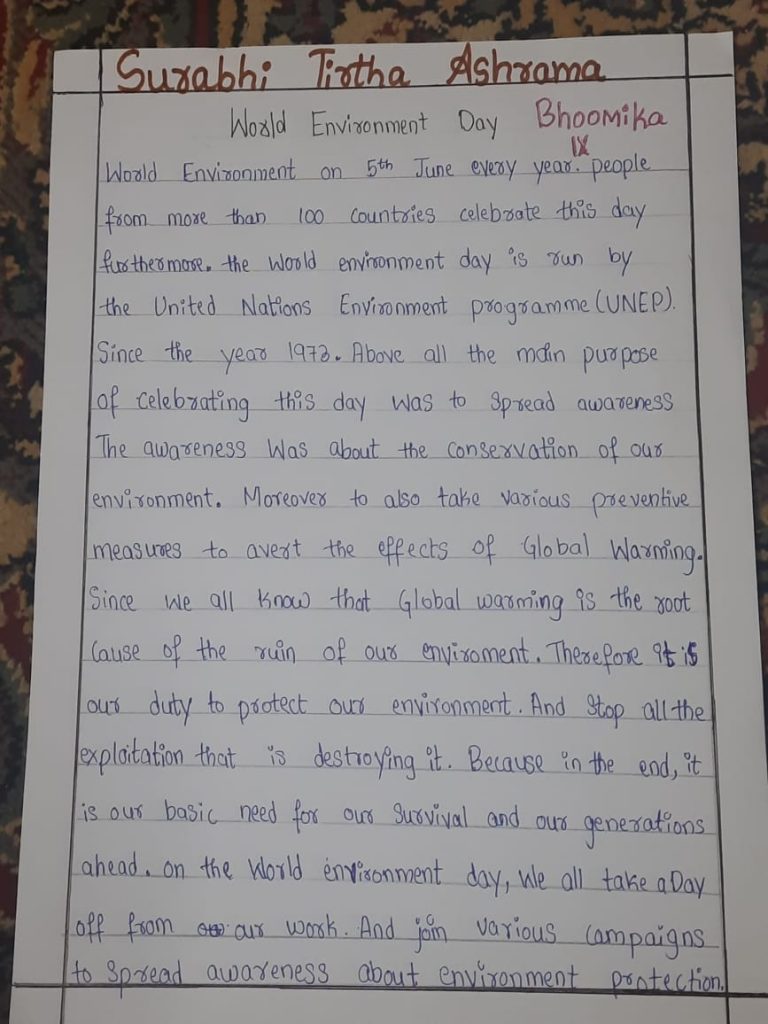 Surabhi Tirtha Ashrama
World Environment Day Bhoomika
IX
World Environment on 5th June every year. people
from more than 100 countries celebrate this day
furthermore. the world environment day is run by
the United Nations Environment programme (UNEP).
Since the year 1973. Above all the main purpose
of celebrating this day was to spread awareness
The awareness was about the conservation of our
environment. Moreover to also take various preventive
measures to avert the effects of Global Warming.
Since we all know that Global warming is the root
cause of the ruin of our enviroment. Therefore it is
our duty to protect our environment. And stop all the
exploitation that is destroying it. Because in the end, it
is our basic need for our survival and our generations
ahead. on the world environment day, we all take a Day
off from our work. And join various campaigns
to spread awareness about environment protection.